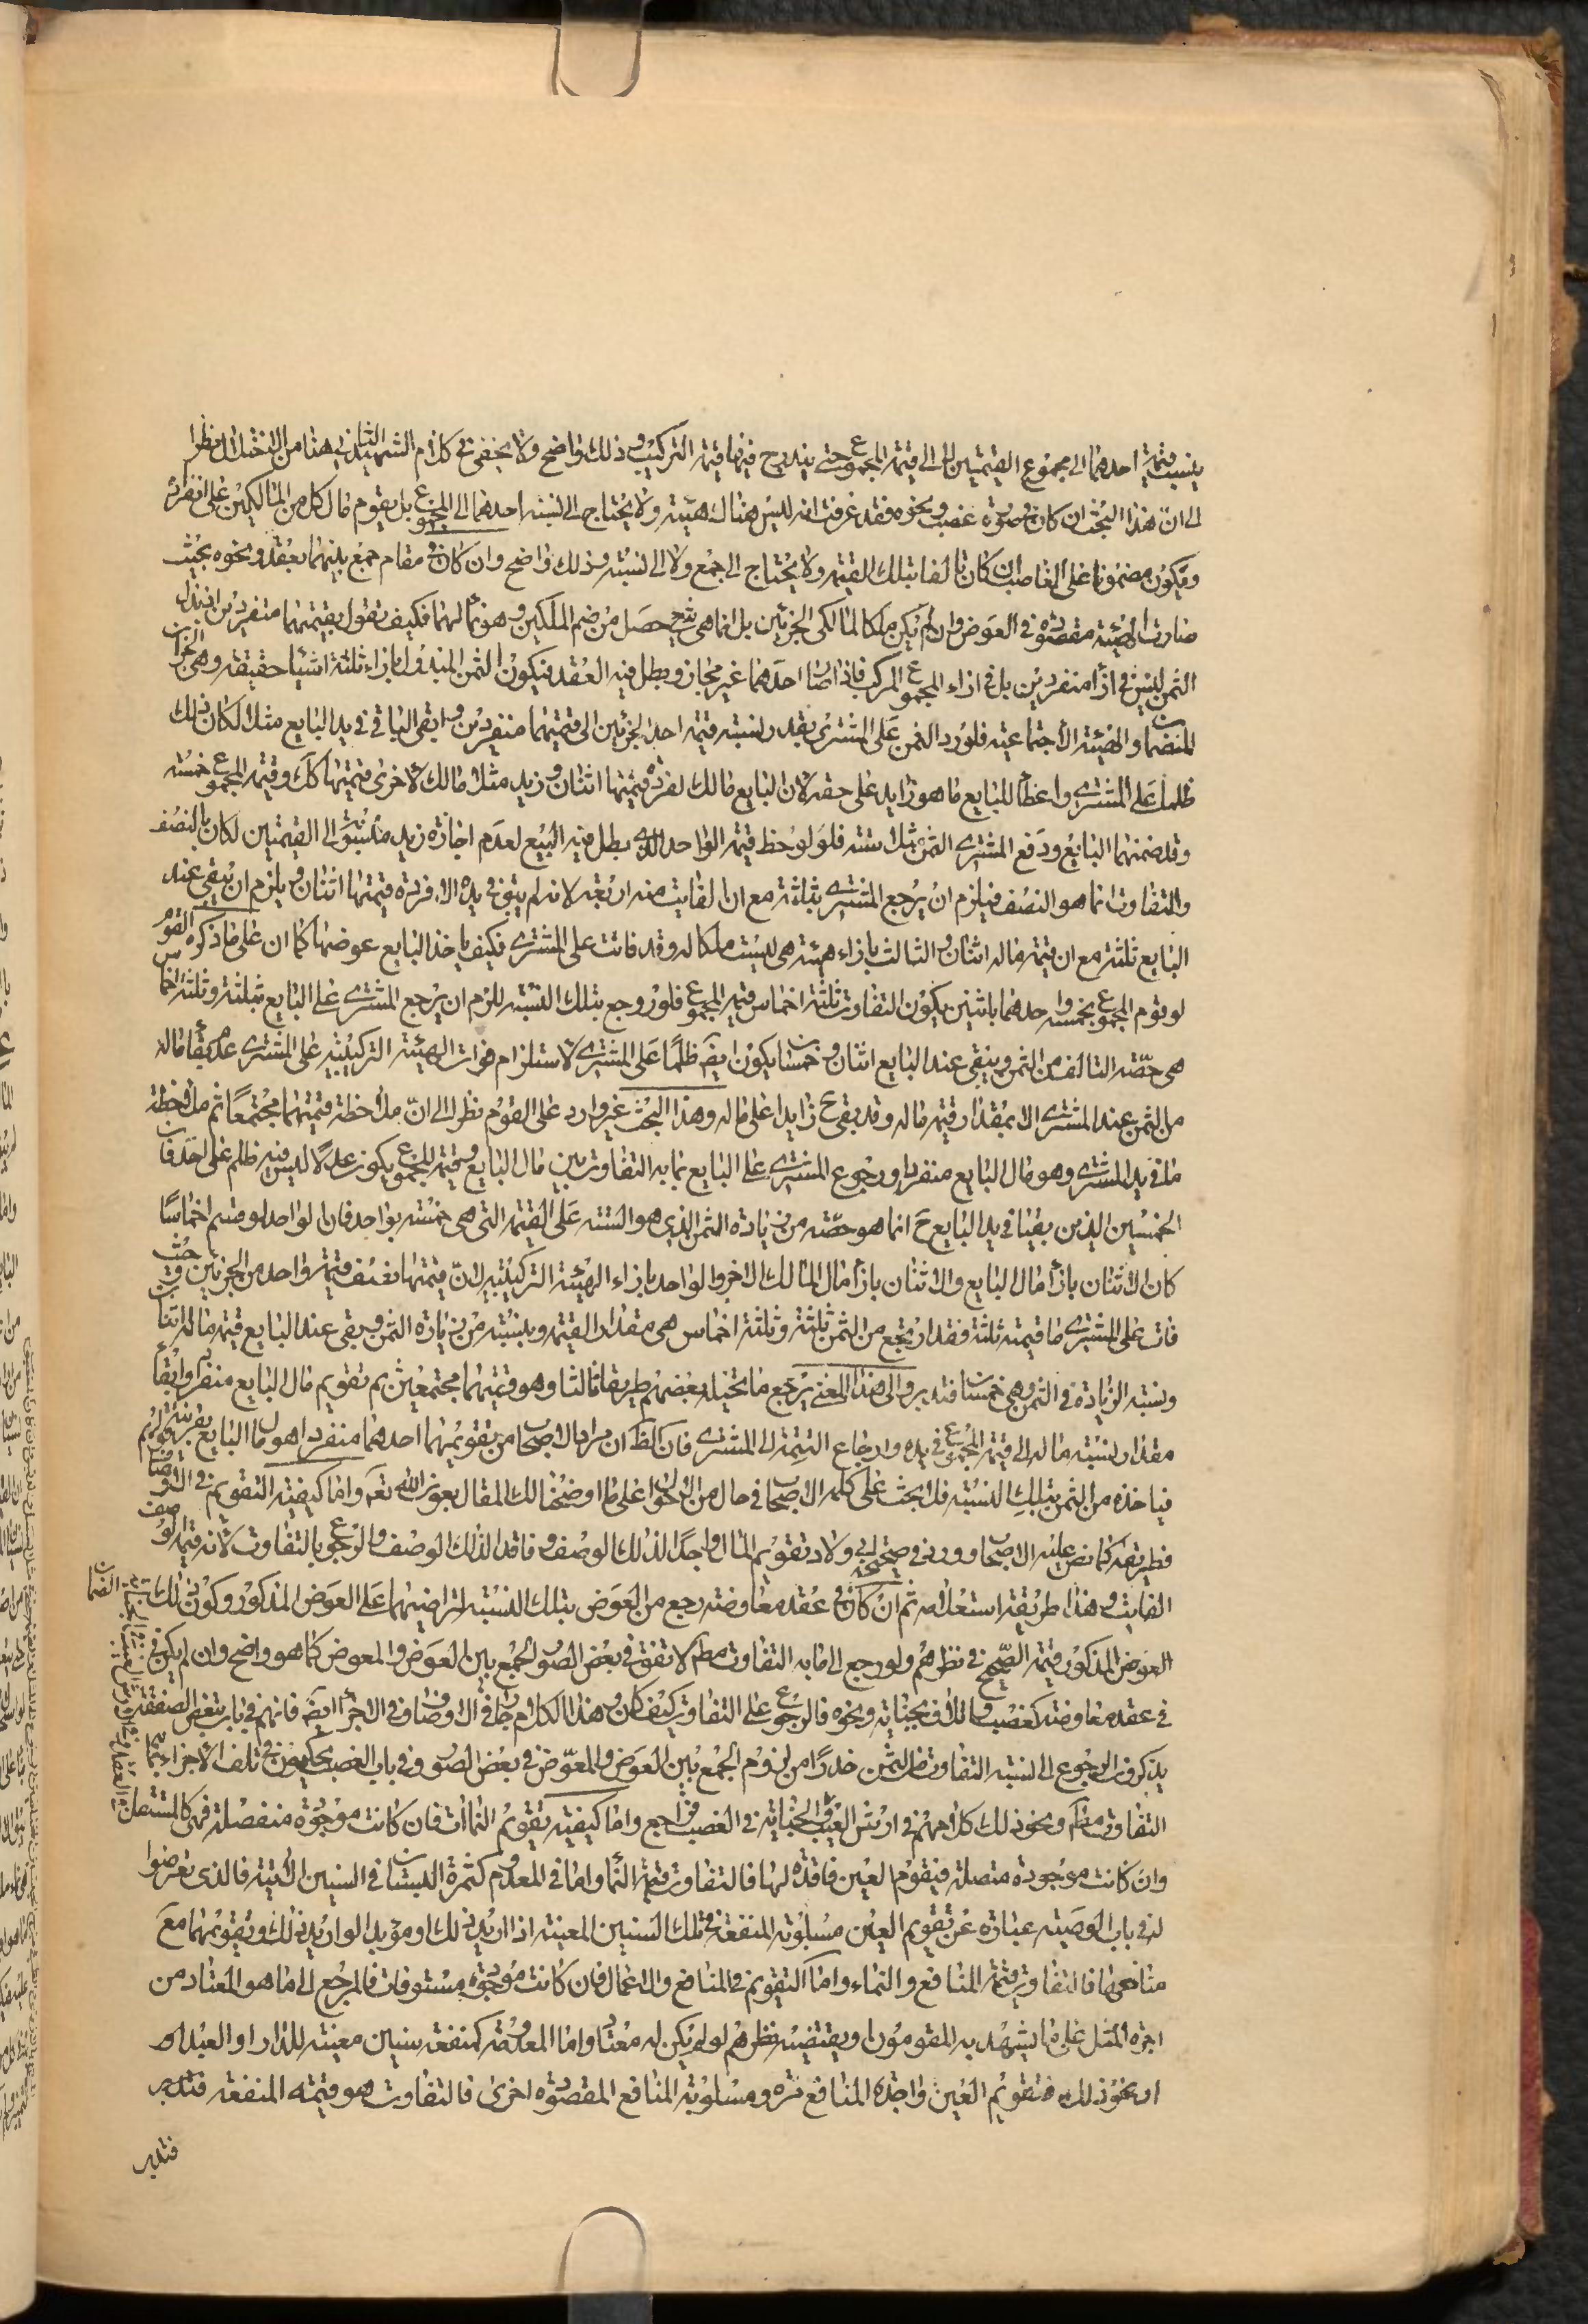 ينسب قيمة احدهما الى مجموع القيمتين لا الى قيمة المجموع حتى يندرج فيها قيمة التركيب وذلك واضح ولا يخفى ما في كلام الشهيد الثاني هنا من الاختلال نظرا
الى ان هذا البحث ان كان في صورة غصب ونحوه فقد عرفت انه ليس هناك هيئة ولا يحتاج الى نسبة احدهما الى المجموع بل يقوم مال كل من المالكين على انفراده
ويكون مضمونا على الغاصب ان كان تالفا بتلك القيمة ولا يحتاج الى جمع ولا الى نسبة وذلك واضح وان كان في مقام جمع بينهما بعقد ونحوه بحيث
صارت الهيئة مقصودة في العوض وان لم يكن ملكا لمالكي الجزئين بل انما هي شيء حصل من ضم الملكين وهو لهما فكيف نقول بقيمتهما منفردين اذ بذل
الثمن ليس في ازاء منفردين بل في ازاء المجموع المركب فاذا صار احدهما غير مجاز وبطل فيه العقد فيكون الثمن المبذول بازاء ثلثة اشياء حقيقة وهي الجزءان
المنضمان والهيئة الاجتماعية فلو رد الثمن على المشتري بقدر نسبة قيمة احد الجزئين الى قيمتهما منفردين وابقى الباقي في يد البايع مثلا لكان ذلك
ظلما على المشتري واعطاء للبايع ما هو زايد على حقه لان البايع مالك لفردة قيمتها اثنان وزيد مثلا مالك لاخرى قيمتها كك وقيمة المجموع خمسة
وقد ضمنهما البايع ودفع المشتري الثمن مثلا ستة فلو لوحظ قيمة الواحد الذي بطل فيه البيع لعدم اجازة زيد ونسبته الى القيمتين لكان بالنصف
والتفاوت انما هو النصف فيلزم ان يرجع المشتري بثلثة مع ان الفايت منه اربعة لانه لم يبق في يده الا فردة قيمتها اثنان ويلزم ان يبقى عند
البايع ثلثة مع ان قيمة ماله اثنان والثالث بازاء هيئة هي ليست ملكا له وقد فاتت على المشتري فكيف ياخذ البايع عوضها كما ان على ما ذكره القوم
لو قوم المجموع بخمسة واحدهما باثنين يكون التفاوت ثلثة اخماس قيمة المجموع فلو رجع بتلك النسبة للزم ان يرجع المشتري على البايع بثلثة وثلثة اخماس
هي حصة التالف من الثمن ويبقى عند البايع اثنان وخمسان يكون ايضا ظلما على المشتري لاستلزام فوات الهيئة التركيبية على المشتري عدم بقاء ماله
من الثمن عند المشتري الا بمقدار قيمة ماله وقد بقي ح زايدا على ماله وهذا البحث غير وارد على القوم نظرا الى ان ملاحظة قيمتهما مجتمعا ثم ملاحظة
ما في يد المشتري وهو مال البايع منفردا ورجوع المشتري على البايع بما به التفاوت بين مال البايع وقيمة المجموع يكون عدلا ليس فيه ظلم على احد فان
الخمسين الذين بقيا في يد البايع ح انما هو حصته من زيادة الثمن الذي هو الستة على القيمة التي هي خمسة بواحد فان الواحد لو قسم اخماسا
كان الاثنان بازاء مال البايع والاثنان بازاء مال المالك الاخر والواحد بازاء الهيئة التركيبية لان قيمتها نصف قيمة واحد من الجزئين وحيث
فات على المشتري ما قيمته ثلثة فقد ارتجع من الثمن ثلثة وثلثة اخماس هي مقدار القيمة ونسبته من زيادة الثمن وبقي عند البايع قيمة ماله اثنان
ونسبة الزيادة في الثمن وهي خمسان فتدبر والى هذا المعنى يرجع ما تخيله بعضهم طريقا ثالثا وهو قيمتهما مجتمعين ثم تقويم مال البايع منفردا وابقاء
مقدار نسبة ماله الى قيمة المجموع في يده وارجاع التتمة الى المشتري فان الظ ان مراد الاصحاب من تقويمهما احدهما منفردا هو مال البايع بقرينة قولهم
فياخذ من الثمن بتلك النسبة فلا بحث على كلمة الاصحاب في حال من الاحوال على ما اوضحنا لك المقال بعون الله تعه واما كيفية التقويم في الاوصاف
فطريقه كما نص عليه الاصحاب وورد في صحيحة ابي ولاد تقويم المال واجدا لذلك الوصف وفاقدا لذلك الوصف والرجوع بالتفاوت لانه قيمة الوصف
الفايت وهذا طريقة استعلامه ثم ان كان في عقد معاوضة رجع من العوض بتلك النسبة لتراضيهما على العوض المذكور وكون ذلك
العوض المذكور قيمة الصحيح في نظرهم ولو رجع الى ما به التفاوت مط لاتفق في بعض الصور الجمع بين العوض والمعوض كما هو واضح وان لم يكن في
في عقد معاوضة كغصب واتلاف بجناية ونحوه فالرجوع على التفاوت كيف كان وهذا الكلام جار في الاوصاف وفي الاجزاء ايضا فانهم في باب تبعض الصفقة
يذكرون الرجوع الى نسبة التفاوت من الثمن حذرا من لزوم الجمع بين العوض والمعوض في بعض الصور وفي باب الغصب يحكمون في تلف الاجزاء بتمام
التفاوت مط ونحو ذلك كلامهم في ارش العيب والجناية في الغصب فراجع واما كيفية تقويم النماءات فان كانت موجودة منفصلة فهي كالمستقل
وان كانت موجودة متصلة فيقوم العين فاقدة لها فالتفاوت قيمة النماء واما في المعدوم كثمرة البستان في السنين الاتية فالذي تعرضوا
له في باب الوصية عبارة عن تقويم العين مسلوبة المنفعة في تلك السنين المعينة اذا اريد ذلك او مؤبدا لو اريد ذلك وتقويمها مع
منافعها فالتفاوت قيمة المنافع والنماء واما التقويم في المنافع والاعمال فان كانت موجودة مستوفاة فالمرجع الى ما هو المعتاد من
اجرة المثل على ما يشهد به المقومون او يقتضيه نظرهم لو لم يكن له معتاد واما المعدومة كمنفعة سنين معينة للدار او العبد
او نحو ذلك فتقويم العين واجدة المنافع مرة ومسلوبة المنافع المقصودة اخرى فالتفاوت هو قيمة المنفعة فتدبر
فتدبر